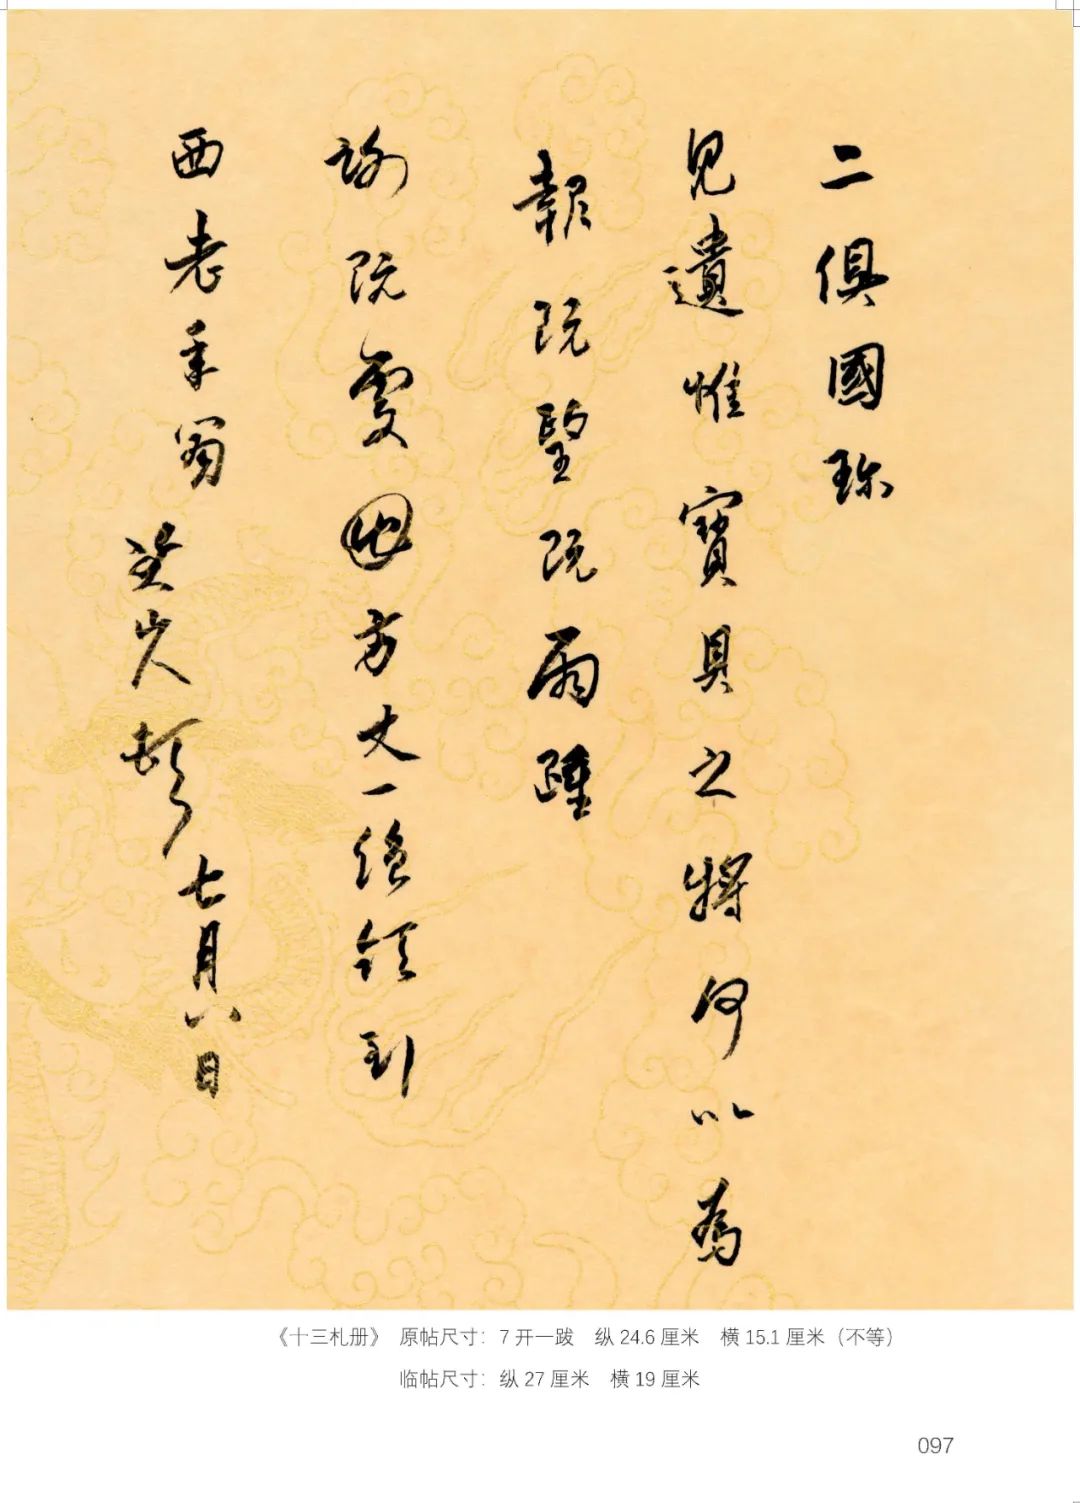 二俱國珎
見遺惟寶具之將何以為
報既望既雨踵
謝既雯回方丈一絕領到
西老年翁
七月八日
《十三札册》 原帖尺寸：7 开一跋 纵 24.6 厘米 横 15.1 厘米（不等）
临帖尺寸：纵 27 厘米 横 19 厘米
097